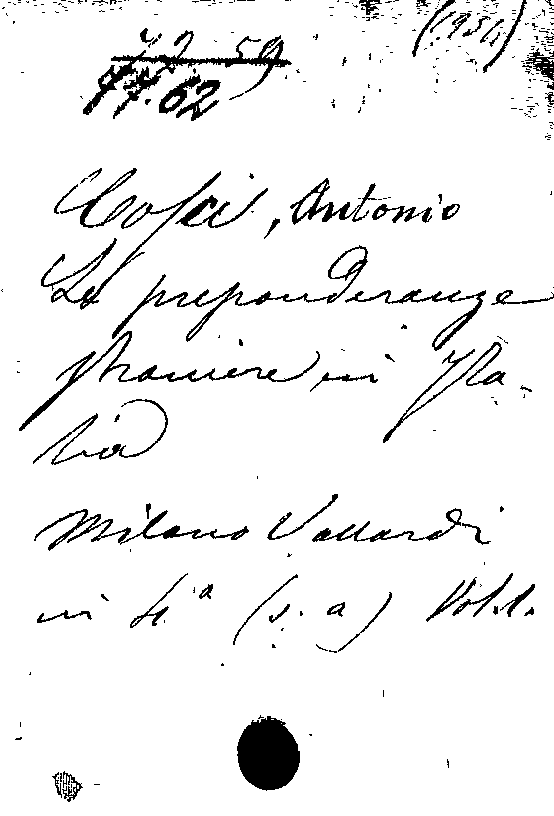 77.62
Cosci, Antonio
Le preponderanze
straniere in Ita-
lia
Milano Vallardi
in 4ª (s. a) Vol. 1.